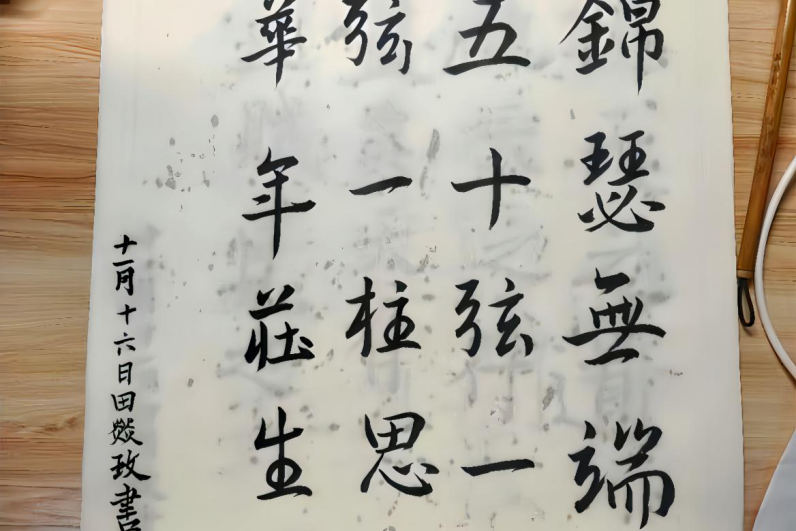 錦瑟無端
五十弦一
弦一柱思
華年莊生
十一月十六日田燚玫書